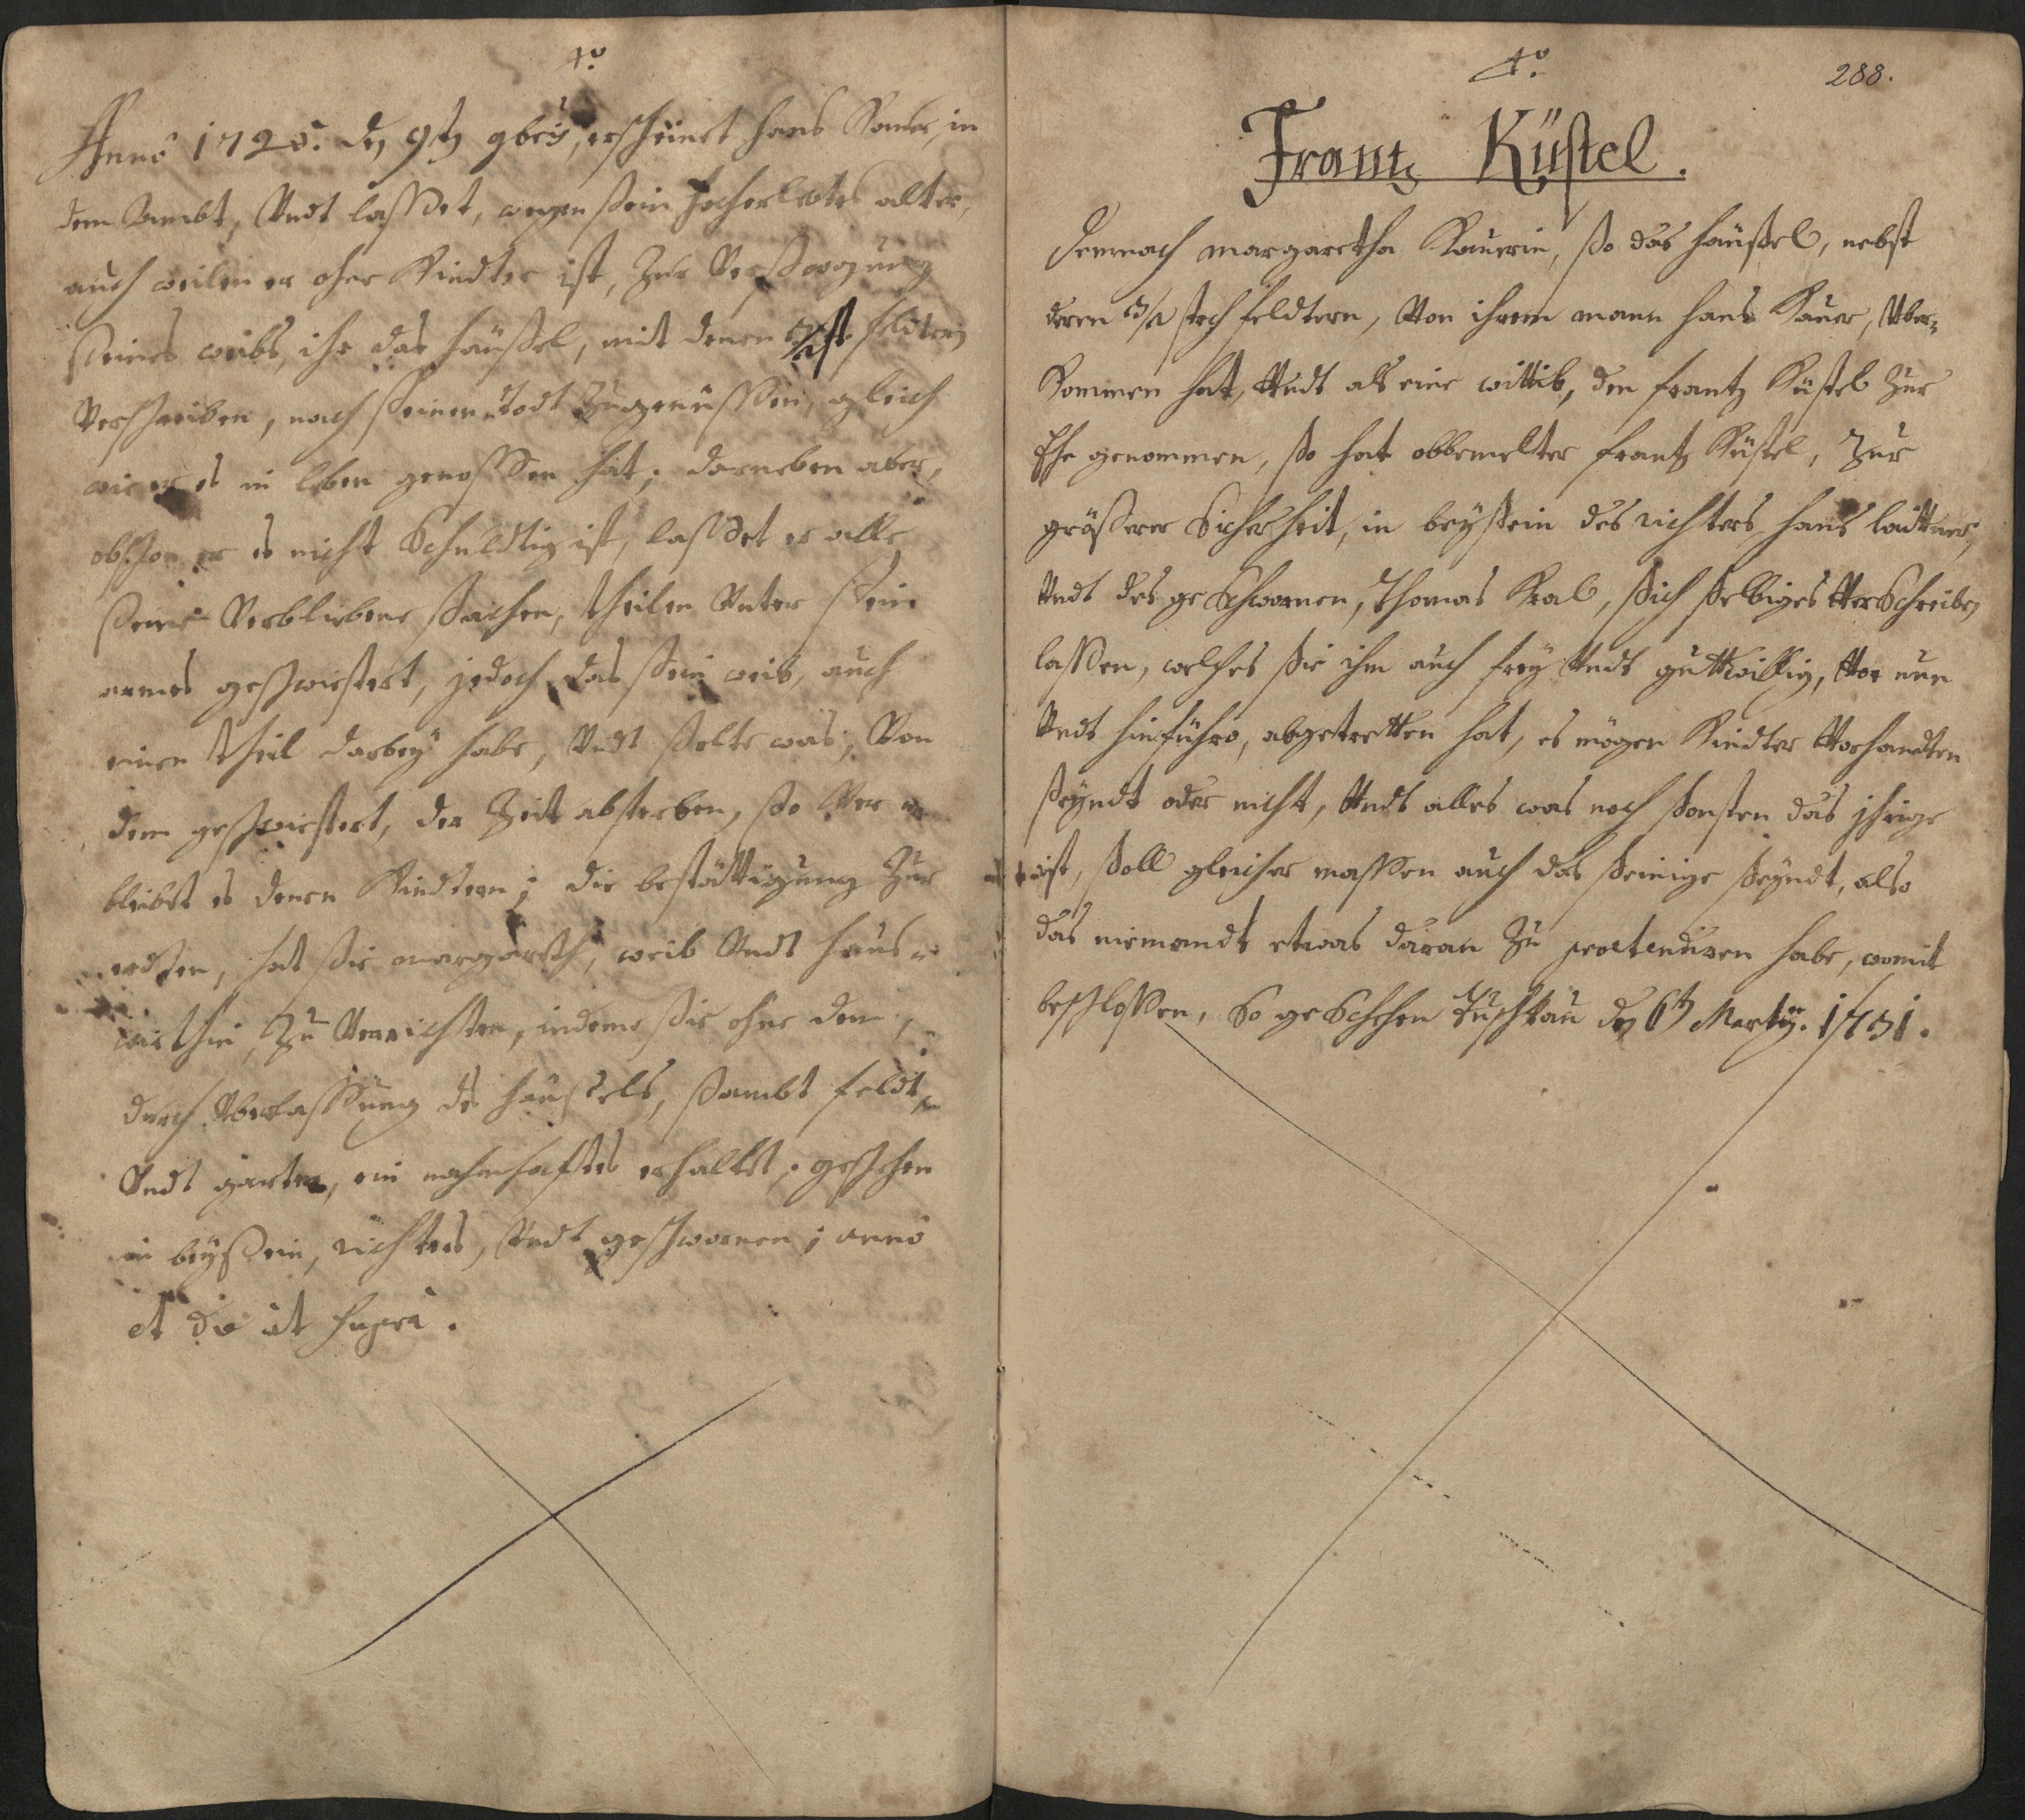 4º
Anno 1725. den 9tn 9bris, erscheinet Hans Kauer, in
dem Ambt, Undt lasset, wegen sein hocherlebtes alter,
auch weilen er ohne Kindter ist, Zur Versorgung
seines weibs, ihr das häussel, mit denen 3/4 st. feldtern
Verschreiben, nach seinen todt Zugenüssen, gleich
wie er es in leben genossen hat; darneben aber,
obschon er es nicht Schuldtig ist, lasset er alle
seine Verbliebene sachen, theilen Unter sein
armes geschwistert, jedoch das sein weib, auch
einen theil darbey habe, Undt solte was, Von
dem geschwistert, der Zeit absterben, so Ver
bleibet es denen Kindtern; die bestättigung Zur
erdten, hat sie margareth, weib Undt haus
wirthin, Zu Verrichten, indeme sie ohne dem,
durch Uberlassung des häussels, sambt feldt
Undt garten, ein nahmhaftes erhaltet; geschehen
in beysein, richters, Undt geschwornen; anno
et die ut supra.
4º
288.
Frantz Küstel.
Demnach margaretha Kauerin, so das häussel, nebst
deren 3/4 stch feldtern, Von ihrem mann hans Kauer, Uber=
Kommen hat, Undt als eine wittib, den frantz Küstel Zur
Ehe genommen, so hat obbemelter frantz Küstel, Zur
grösserer Sicherheit, in beysein des richters hans laittner,
Undt des geschwornen, Thomas Kral, sich selbiges VerSchreiben
lassen, welches sie ihm auch frey Undt guttwillig, Vor nun
Undt hinführo, abgetretten hat, es mögen Kindter Vorhandten
seyndt oder nicht, Undt alles was noch sonsten das jhrige
ist, soll gleicher massen auch das seinige seyndt, also
das niemandt etwas daran Zu praetendiren habe, womit
beschlossen, So geSchehen Tuschkau den 6tn Martij. 1731.